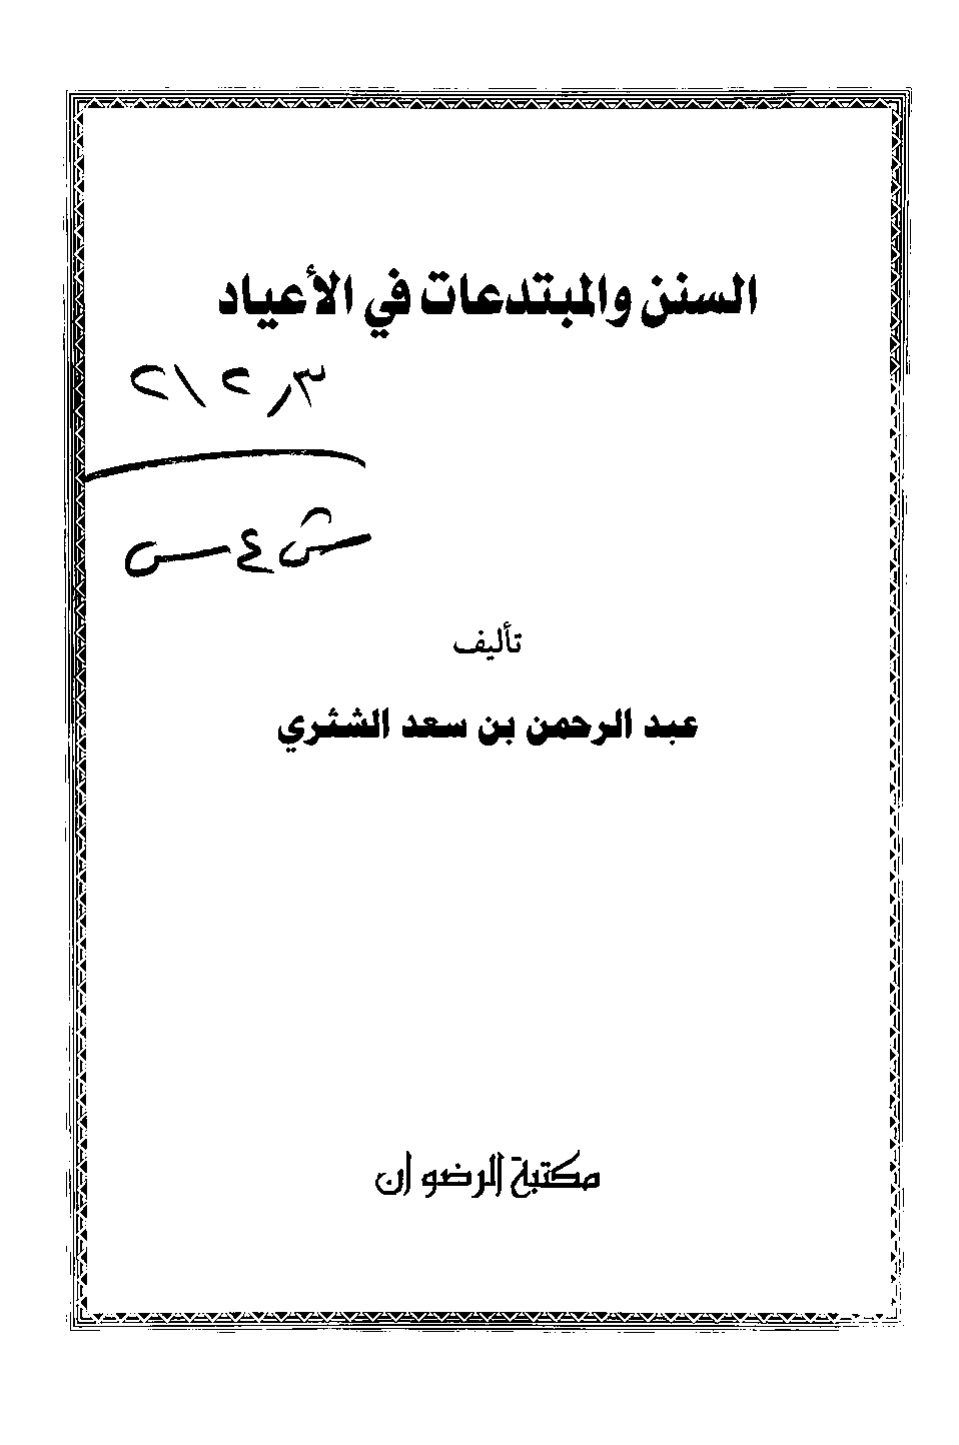 السنن والمبتدعات في الأعياد
٢١٢٫٣
ش ع س
تأليف
عبد الرحمن بن سعد الشثري
مكتبة الرضوان